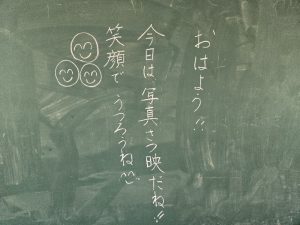 おはよう!!
今日は、写真さつ映だね!!
笑顔で うつろうね